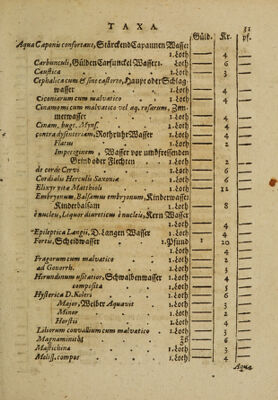 TAXA. 51
Güld. Kr. pf.
Aqua Caponis confortans, Stärckend Capaunen Wasser
1. Loth — 4
Carbunculi, Gülden Carfunckel Wasser 1. Loth — 6
Caustica 1. Loth — 3
Cephalica cum & sine castorio, Haupt oder Schlag
wasser 1. Loth — 4
Ciconiarum cum malvatico 1. Loth — 4
Cinamomi cum malvatico vel aq. rosarum, Zim-
metwasser 1. Loth — 4
Cinam. bugl. Mynf. 1. Loth — 4
contra dysenteriam, Rothruhr Wasser 1. Loth — 4
Flatus 1. Loth — 2
Impetiginem, Wasser vor umbfressenden
Grind oder Flechten 1. Loth — 2
de corde Cervi 1. Loth — 6
Cordialis Herculis Saxoniæ 1. Loth — 6
Elixyr vitæ Matthioli 1. Loth — 12
Embryonum, Balsamus embryonum, Kinderwasser
Kinderbalsam 1. Loth — 8
è nucleis, Liquor diureticus è nucleis, Kern Wasser
1. Loth — 4
*Epileptica Langii, D. Langen Wasser 1. Loth — 4
Fortis, Scheidwasser 1. Pfund 1 20
1. Loth — 4
Fragorum cum malvatico 1. Loth — 2
ad Gonorrh. 1. Loth — 3
Hirundinum usitatior, Schwalbenwasser 1. Loth — 4
composita 1. Loth — 5
Hysterica D. Koleri 1. Loth — 6
Major, Weiber Aquavit 1. Loth — 3
Minor 1. Loth — 2
Horstii 1. Loth — 4
Liliorum convallium cum malvatico 1. Loth — 4
Magnanimitatis ʒß — 6
Mastichina 1. Loth — 3
Meliss. compos 1. Loth — 4
Aqua